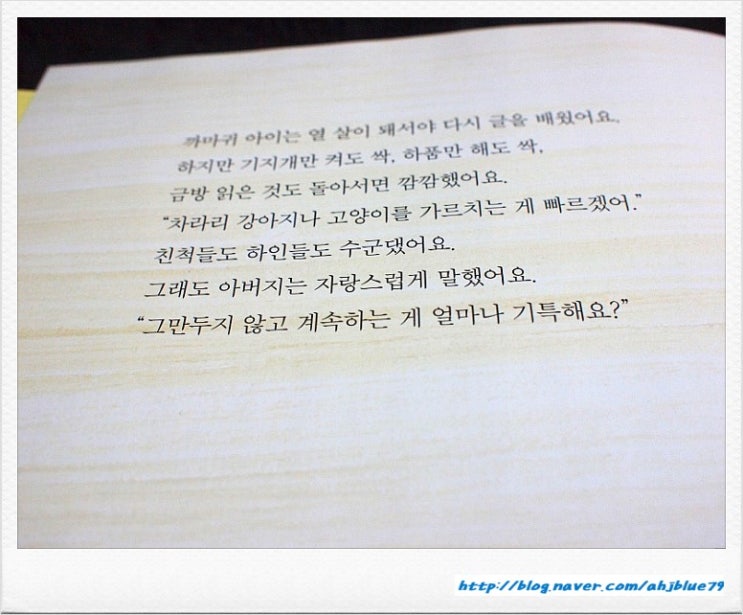 까마귀 아이는 열 살이 돼서야 다시 글을 배웠어요.
하지만 기지개만 켜도 싹, 하품만 해도 싹,
금방 읽은 것도 돌아서면 깜깜했어요.
“차라리 강아지나 고양이를 가르치는 게 빠르겠어.”
친척들도 하인들도 수군댔어요.
그래도 아버지는 자랑스럽게 말했어요.
“그만두지 않고 계속하는 게 얼마나 기특해요?”
http://blog.naver.com/ahjblue79